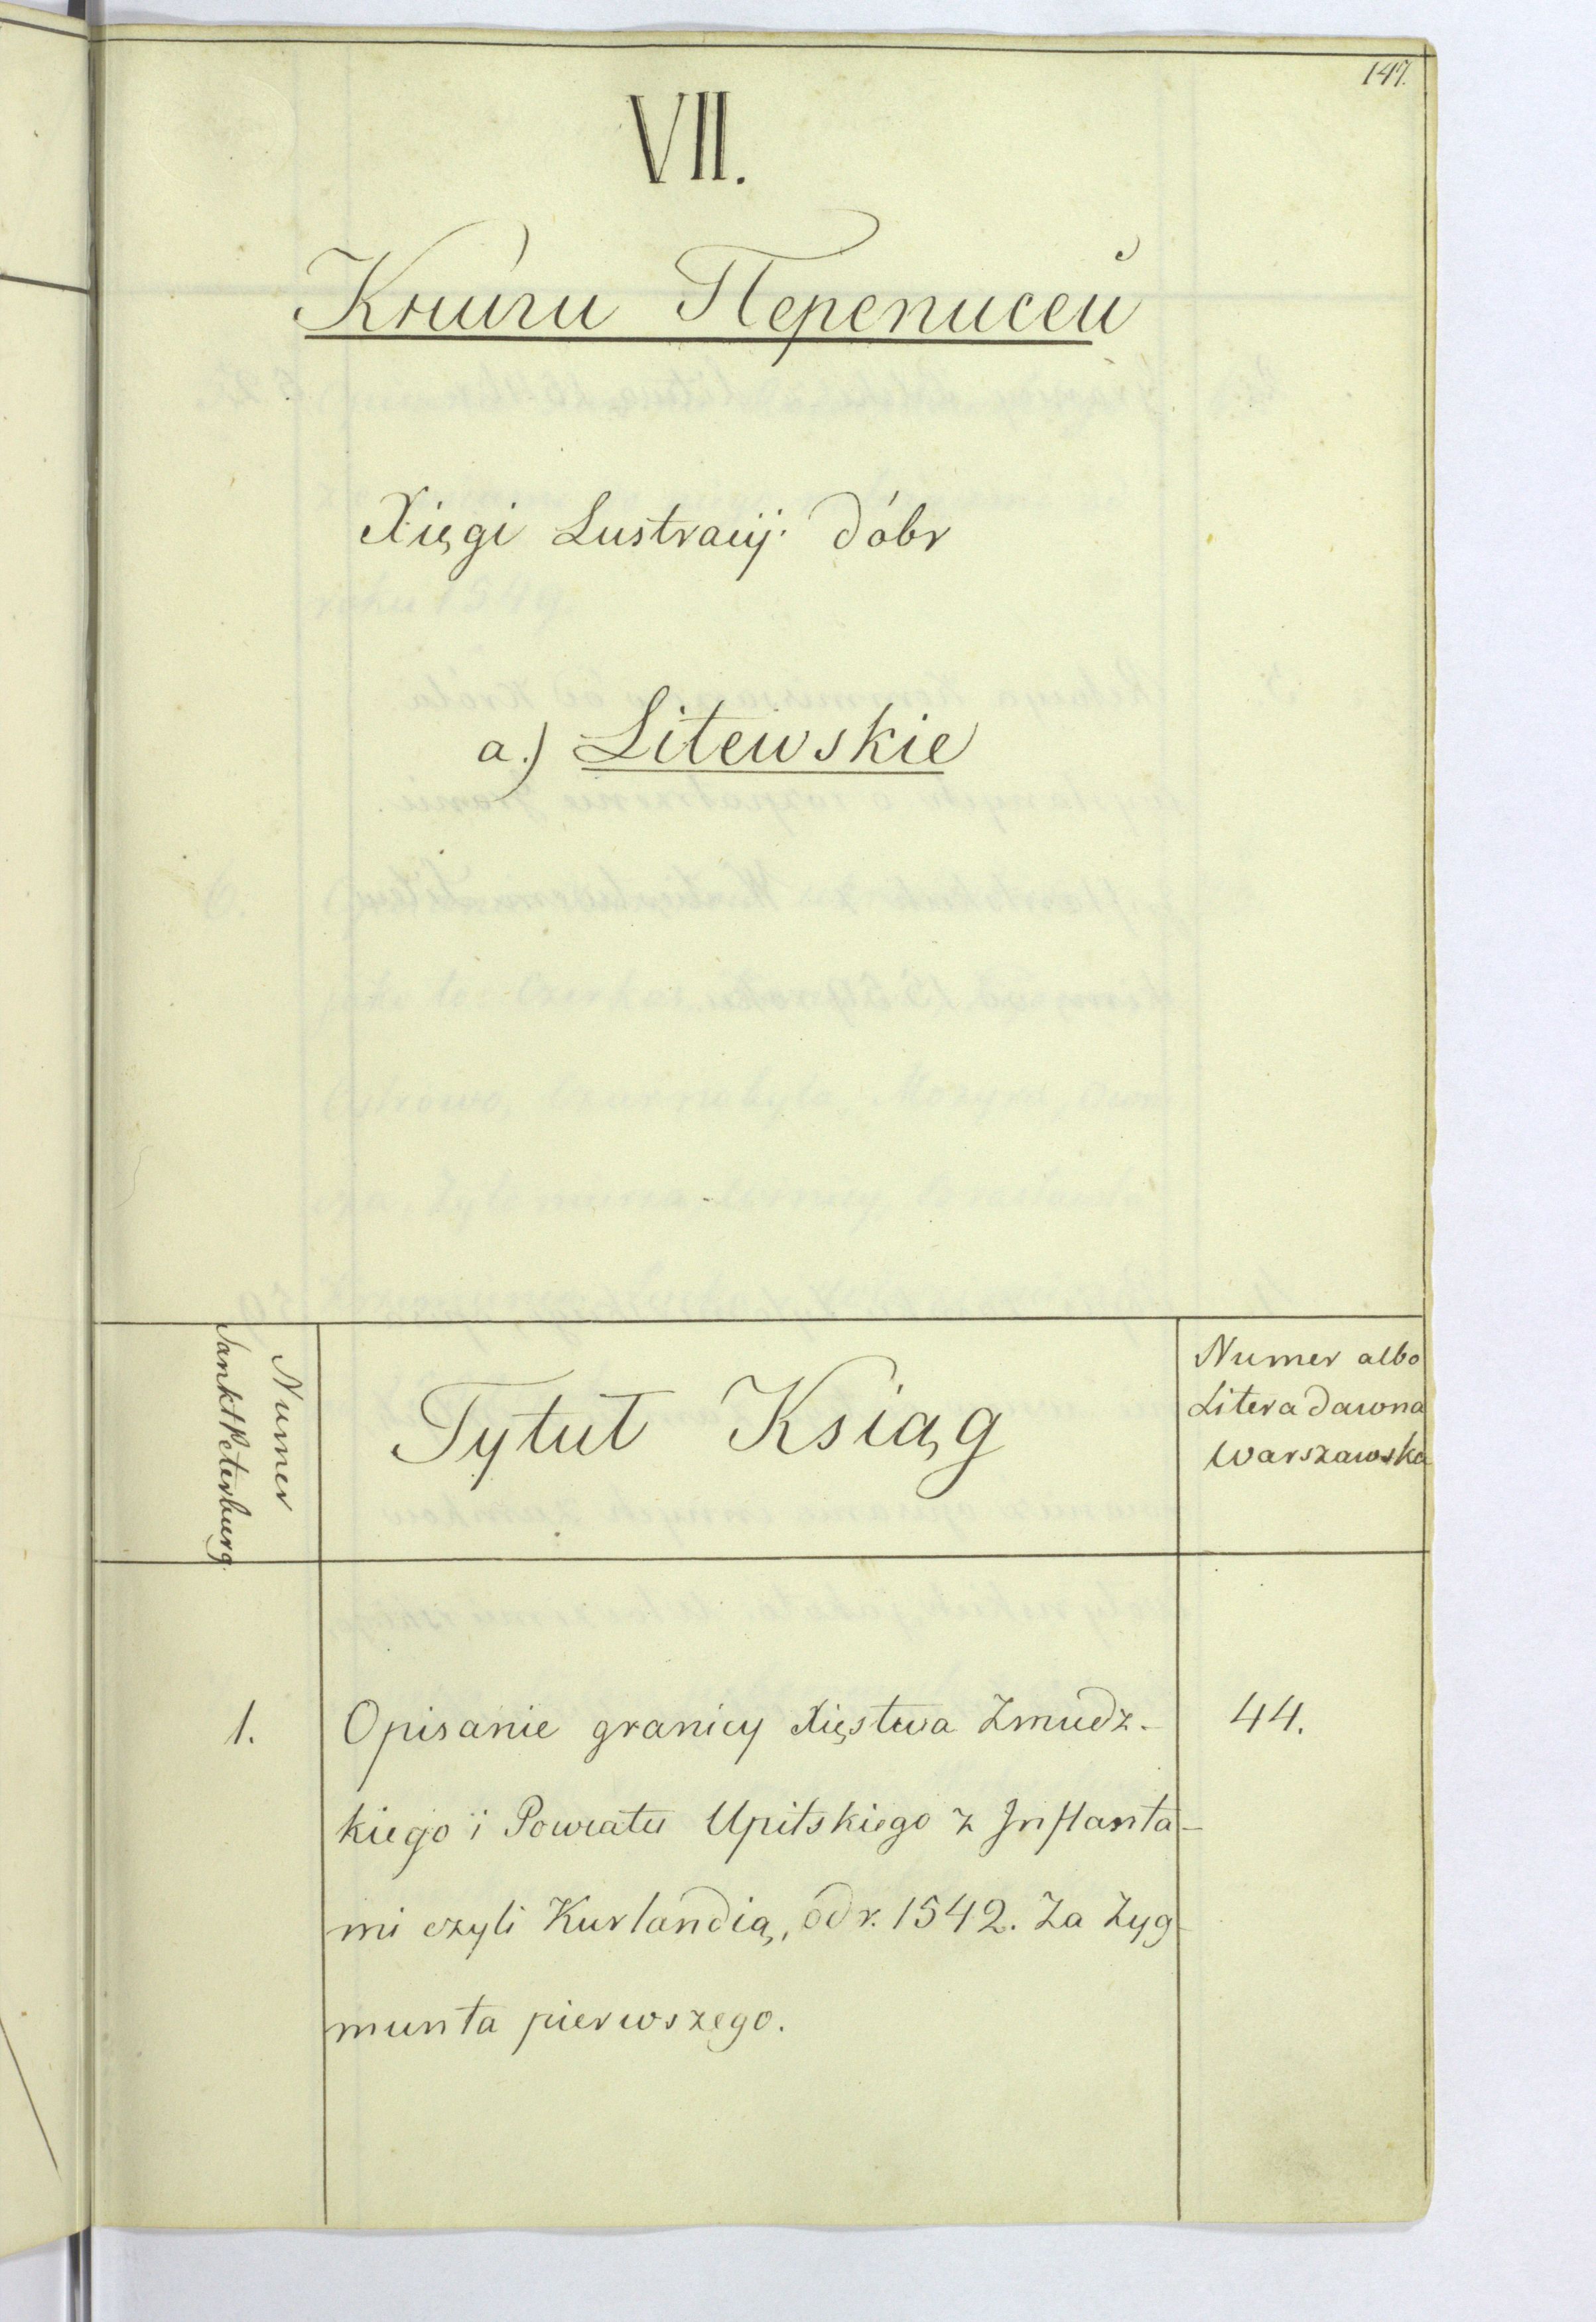 147.
VII.
Книги Переписей
Xięgi Lustracij dóbr
a.) Litewskie
Numer
SanktPeterburg.
Tytuł Ksiąg
Numer albo
Litera dawna
Warszawska
1.
Opisanie granicy Xięstwa Zmudz-
44.
kiego i Powiatu Upitskiego z Inflanta-
mi czyli Kurlandią, od r. 1542. Za Zyg
munta pierwszego.